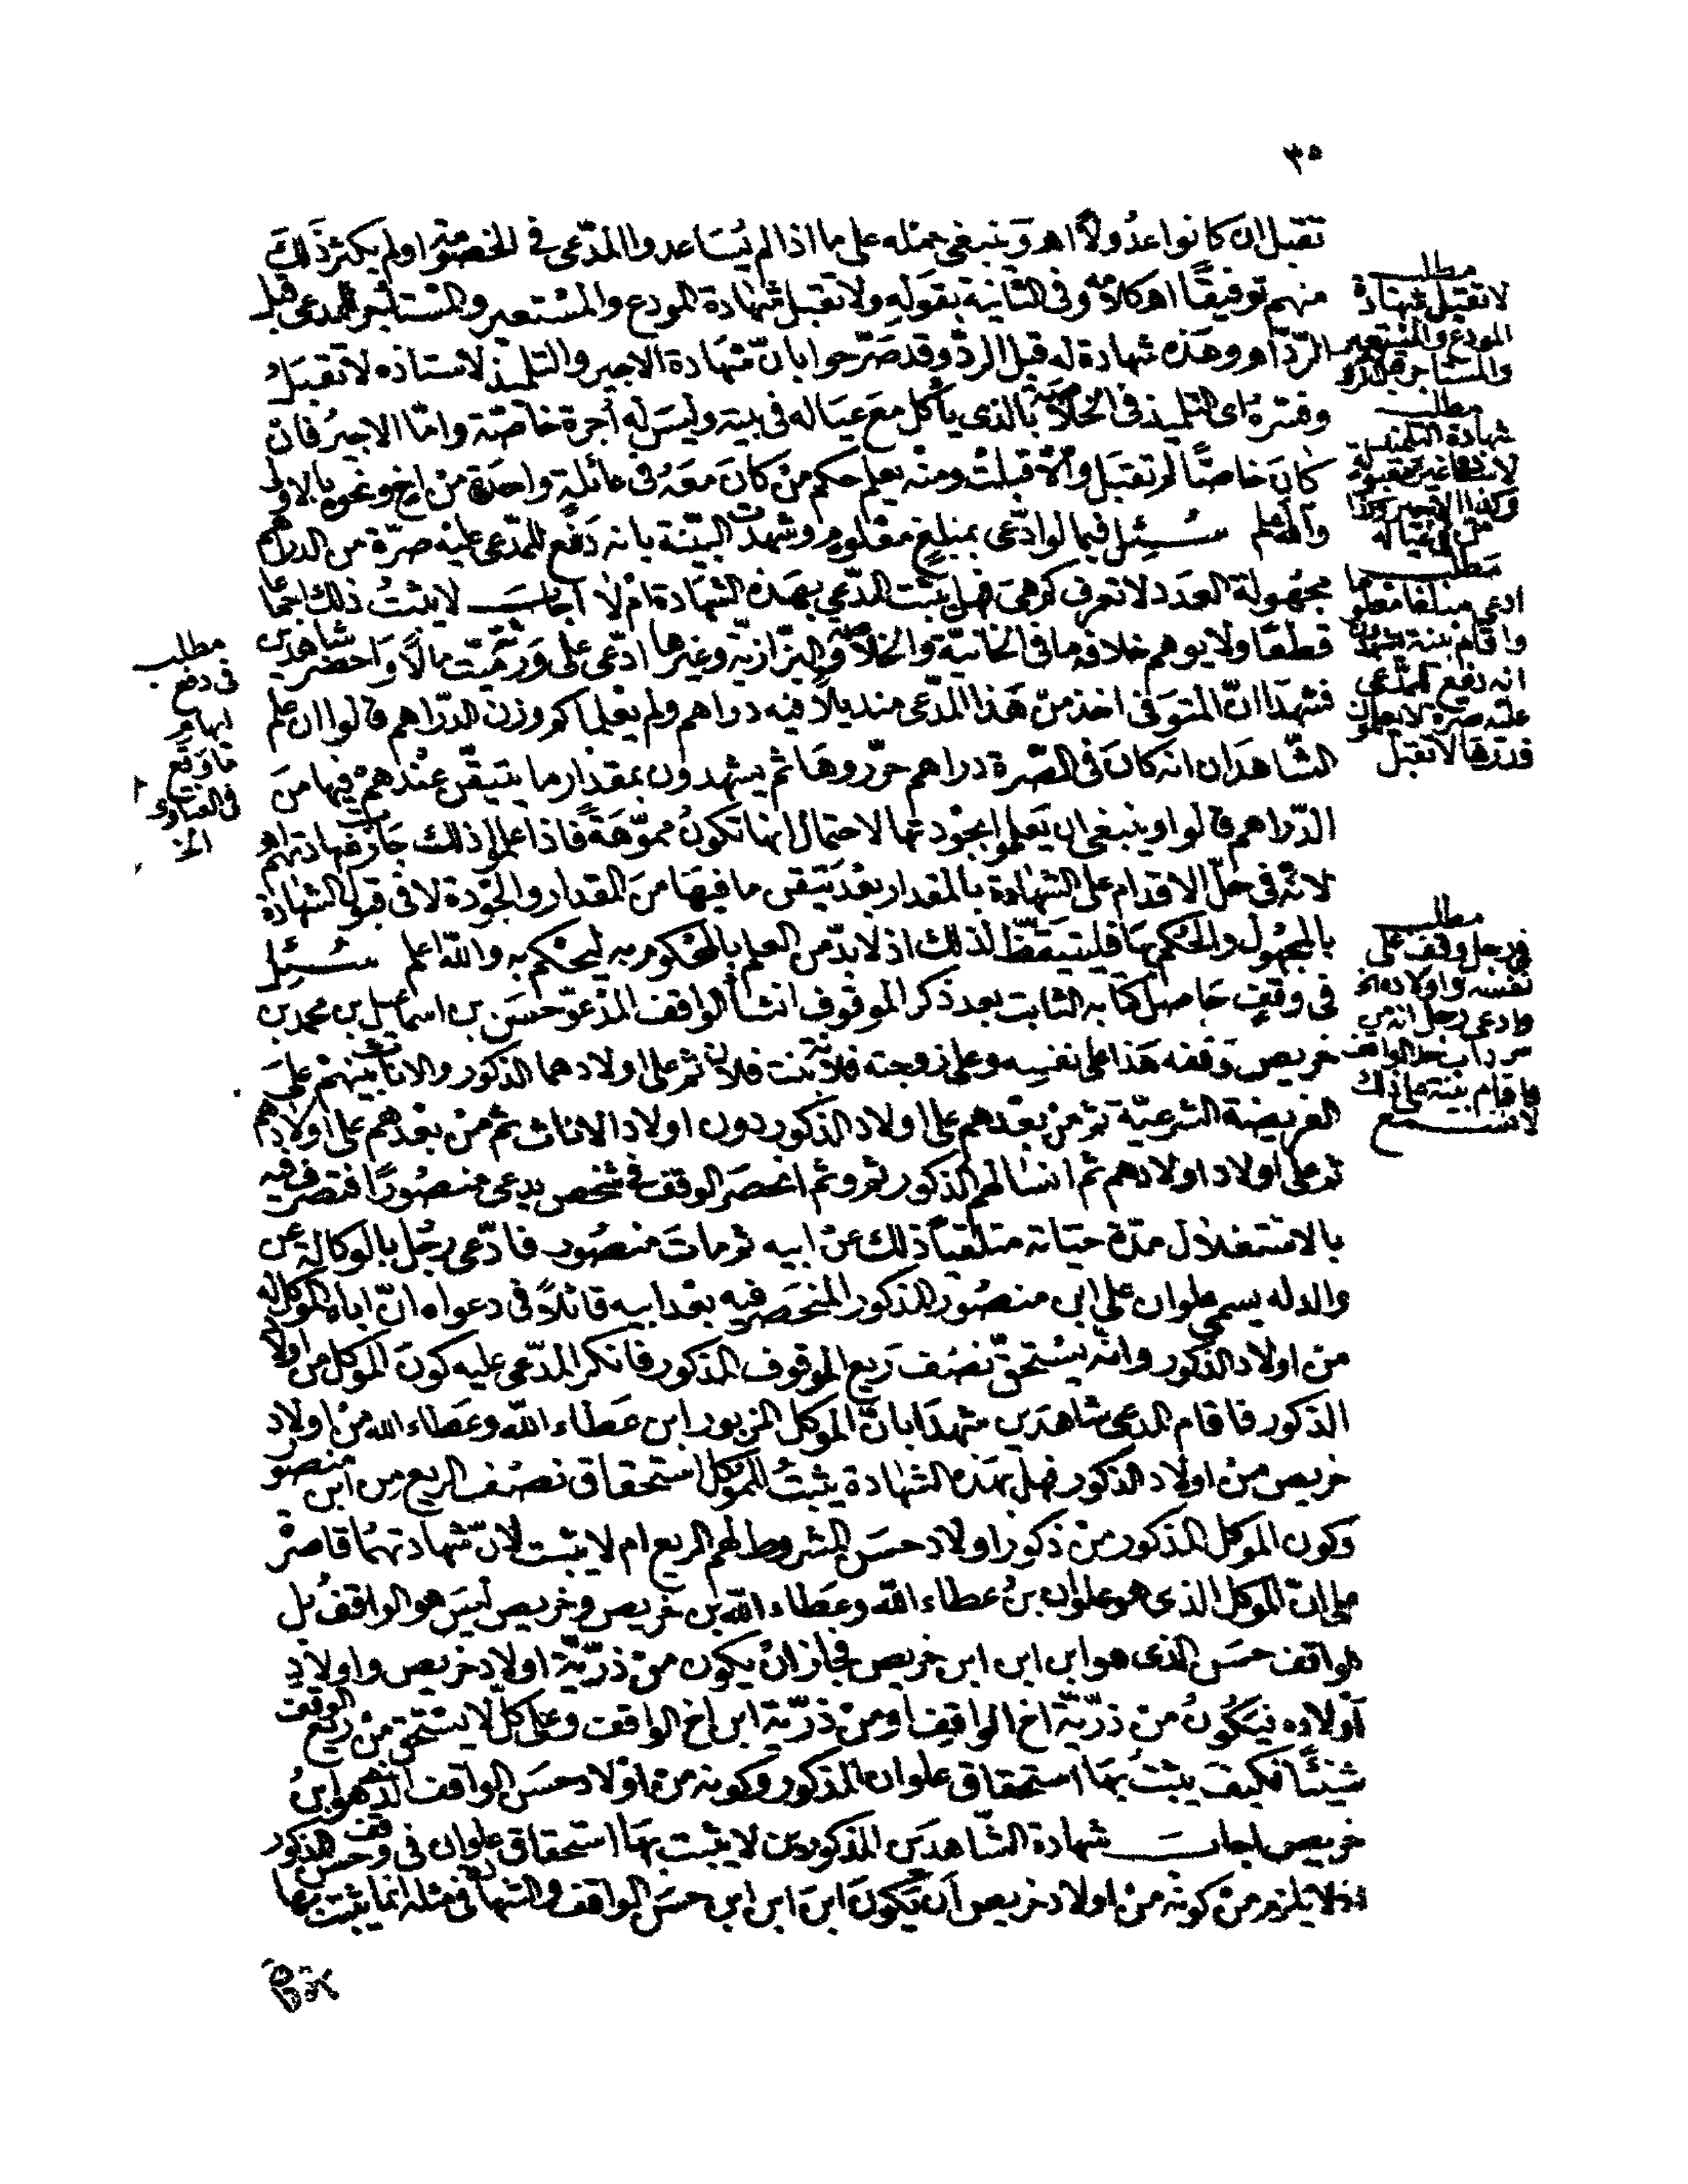 ٣٥
تقبل ان كانوا عدولا اهـ وينبغى حمله على ما اذا لم يساعدوا المدعى فى الخصومة او لم يكثر ذلك
منهم توفيقا اهـ كلامه وفى الثانية بقوله ولا تقبل شهادة المودع والمستعير والمستأجر للمدعى قبل
الرد اهـ وهذه شهادة له قبل الرد وقد صرحوا بان شهادة الاجير والتلميذ لاستاذه لا تقبل
وفسره اى التلميذ فى الخلاصة بالذى ياكل مع عياله فى بيته وليس له اجرة خاصة واما الاجير فان
كان خاصا لم تقبل والا قبلت ومنه يعلم حكم من كان معه فى عائلة واحدة من اخ ونحوه بالاولى
والله اعلم سئل فيما لو ادعى بمبلغ معلوم وشهدت البينة بانه دفع للمدعى عليه صرة من الدراهم
مجهولة العدد لا تعرف كم هى فهل يثبت المدعي بهذه الشهادة ام لا اجاب لا يثبت ذلك اجماعا
قطعا ولا يوهم خلافه ما فى الخانية والخلاصة والبزازية وغيرها ادعى على ورثة ميت مالا واحضر شاهدين
فشهدا ان المتوفى اخذ من هذا المدعى منديلا فيه دراهم ولم يعلما كم وزن الدراهم قالوا ان علم
الشاهدان انه كان فى الصرة دراهم حرروها ثم يشهدون بمقدار ما يتيقن عندهم فيها من
الدراهم قالوا وينبغى ان يعلموا بجودتها لاحتمال انها تكون مموهة فاذا علموا ذلك جازت شهادتهم اهـ
لانه فى حل الاقدام على الشهادة بالمقدار بعد تيقن ما فيها من المقدار والجودة لا فى قبول الشهادة
بالمجهول والحكم بها فليتيقظ لذلك اذ لا بد من العلم بالمحكوم به ليحكم به والله اعلم سئل
فى وقف حاصل كتابه الثابت بعد ذكر الموقوف انشأ الواقف المدعو حسن بن اسماعيل بن محمد بن
خريص وقفه هذا على نفسه وعلى زوجته فلانة بنت فلان ثم على اولادهما الذكور والاناث بينهم على
الفريضة الشرعية ثم من بعدهم على اولاد الذكور دون اولاد الاناث ثم من بعدهم على اولادهم
ثم على اولاد اولادهم ثم انسالهم الذكور ثم وثم انحصر الوقف فى شخص يدعى منصورا فتصرف فيه
بالاستغلال مدة حياته متلقيا ذلك عن ابيه ثم مات منصور فادعى رجل بالوكالة عن
والد له يسمى علوان على ابن منصور المذكور المنحصر فيه بعد ابيه قائلا فى دعواه ان اباه الموكل له
من اولاد الذكور وانه يستحق نصف ريع الموقوف المذكور فانكر المدعى عليه كون الموكل من اولاد
الذكور فاقام المدعى شاهدين شهدا بان الموكل المزبور ابن عطاء الله وعطاء الله من اولاد
خريص من اولاد الذكور فهل بهذه الشهادة يثبت للموكل استحقاق نصف الريع من ابن منصور
وكون الموكل المذكور من ذكور اولاد حسن المشروط لهم الريع ام لا يثبت لان شهادتهما قاصرة
على ان الموكل الذى هو علوان بن عطاء الله وعطاء الله بن خريص وخريص ليس هو الواقف بل
الواقف حسن الذى هو ابن ابن ابن خريص فجاز ان يكون من ذرية اولاد خريص واولاد
اولاده فيكون من ذرية اخ الواقف او من ذرية ابن اخ الواقف وعلى كل لا يستحق من ريع الوقف
شيئا فكيف يثبت بها استحقاق علوان المذكور وكونه من اولاد حسن الواقف الذى هو ابن
خريص اجاب شهادة الشاهدين المذكورين لا يثبت بها استحقاق علوان فى وقف حسن المذكور
اذ لا يلزم من كونه من اولاد خريص ان يكون ابن ابن ابن حسن الواقف والشهادة فى مثله انما يثبت بها
مطلب
لا تقبل شهادة
المودع والمستعير
والمستأجر قبل الرد
مطلب
شهادة التلميذ
لاستاذه غير مقبولة
وكذا الاجير وكذا
من فى عياله
مطلب
ادعى مبلغا معلوما
واقام بينة شهدوا
انه دفع للمدعى
عليه صرة لا يعلمون
قدرها لا تقبل
مطلب
فى دفع
ايهام
ما وقع
فى الفتاوى
الخ
مطلب
فى رجل وقف على
نفسه واولاده الخ
وادعى رجل انه من
الواقف
فاقام بينة على ذلك
لا تسمع